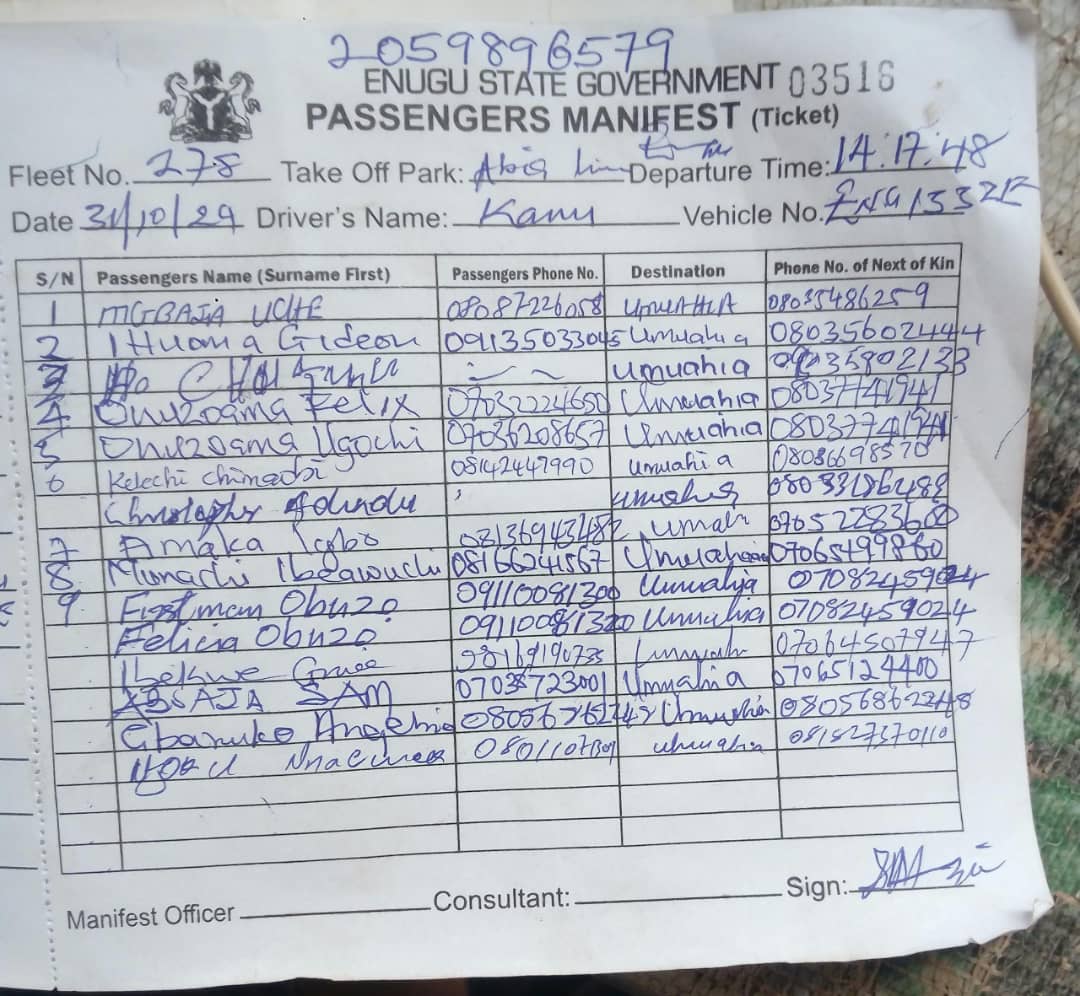 2059896579
ENUGU STATE GOVERNMENT 03516
PASSENGERS MANIFEST (Ticket)
Fleet No. 278 Take Off Park: Abia Line Departure Time: 14:17:48
Date 31/10/24 Driver's Name: Kanu Vehicle No.
S/N Passengers Name (Surname First) Passengers Phone No. Destination Phone No. of Next of Kin
1 MGBAJA UCHE 08087226058 UMUAHIA 08035486259
2 Ihuoma Gideon 09135033045 Umuahia 08035602444
3 Umuahia
4 Onuzoama Felix 07032224650 Umuahia 08037741941
5 Onuzoama Ugochi 07036208657 Umuahia 08037741941
6 Kelechi Chimaobi 08142447990 Umuahia 08086698570
Christopher 08033186482
7 Amaka Igbo 08136943482
8 Munachi 08166241567 07065499860
9 Firstman Obuzo 09110081300 Umuahya 07082459024
Felicia Obuzo 09110081320 Umuahia 07082459024
Ibekwe Grace 08169190735 07064507947
SAM 07038723001 Umuahia 07065124400
Gbaruko Umuahia 08056862248
Umuahia 081527370110
Manifest Officer Consultant: Sign: